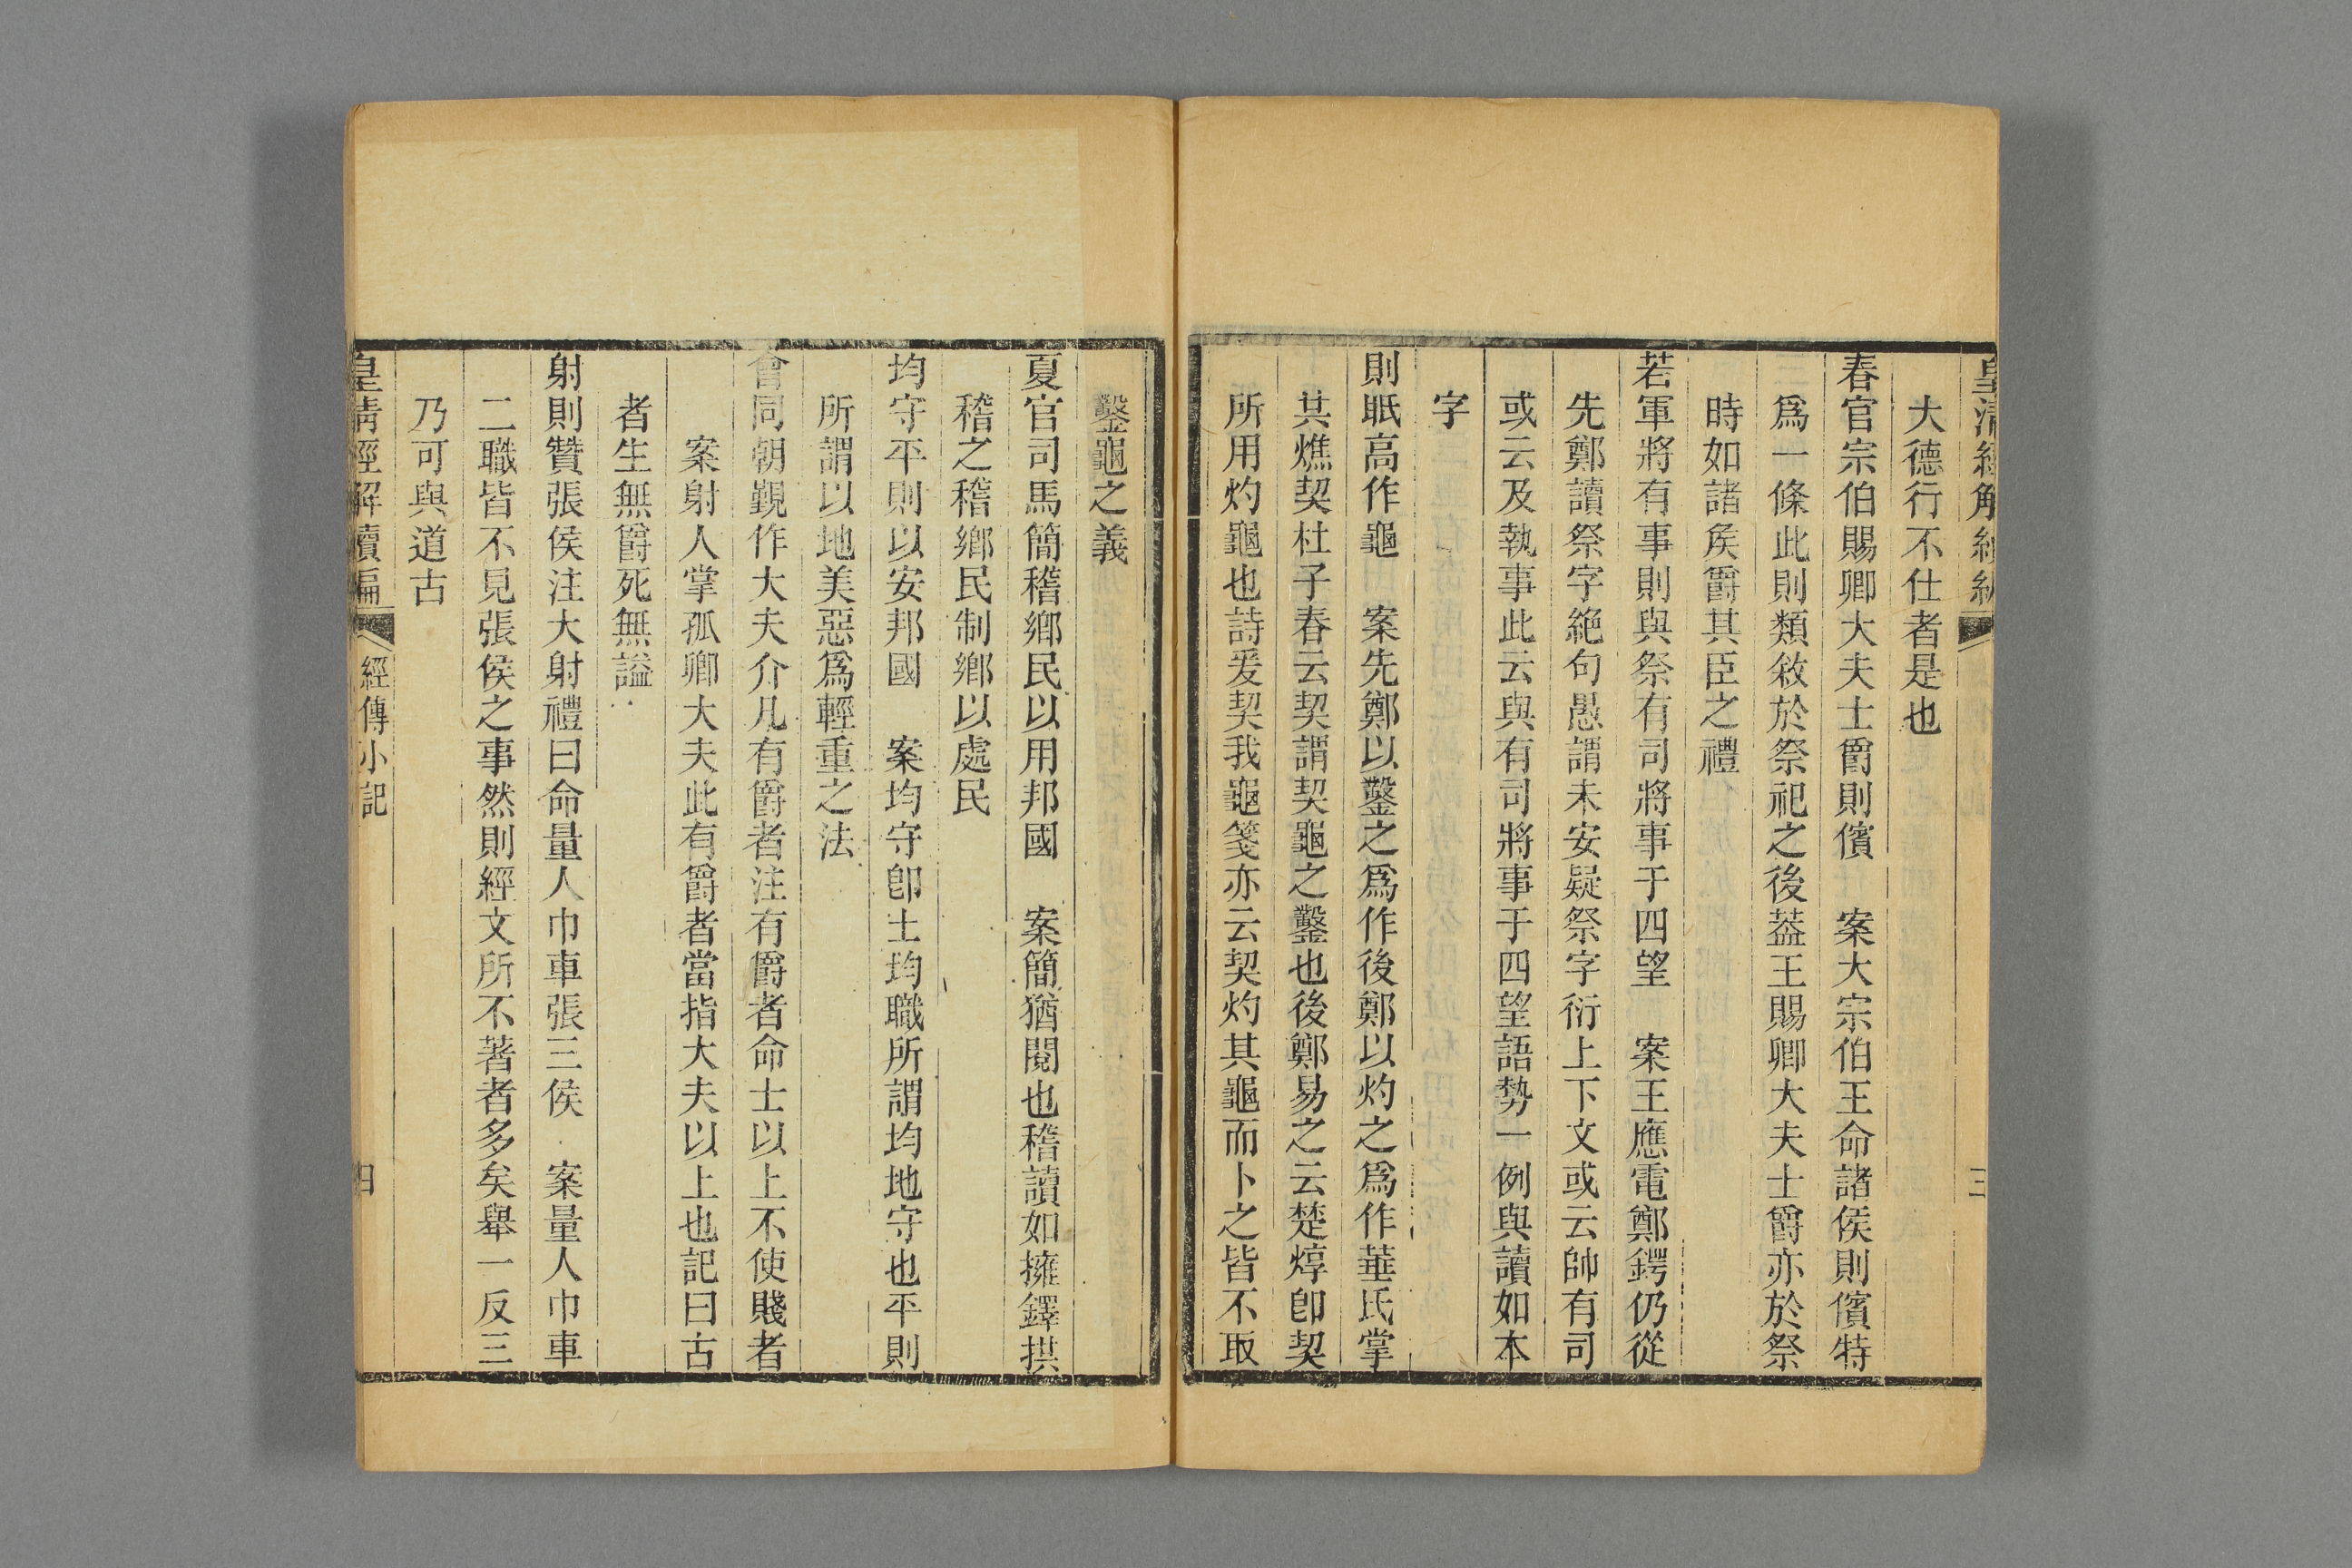 皇清經解續編
三
大德行不仕者是也
春官宗伯賜卿大夫士爵則儐　案大宗伯王命諸侯則儐特
爲一條此則類敘於祭祀之後葢王賜卿大夫士爵亦於祭
時如諸矦爵其臣之禮
若軍將有事則與祭有司將事于四望　案王應電鄭鍔仍從
先鄭讀祭字絕句愚謂未安疑祭字衍上下文或云帥有司
或云及執事此云與有司將事于四望語勢一例與讀如本
字
則眂高作龜　案先鄭以鑿之爲作後鄭以灼之爲作菙氏掌
共燋契杜子春云契謂契龜之鑿也後鄭易之云楚焞卽契
所用灼龜也詩爰契我龜箋亦云契灼其龜而卜之皆不取
鑿龜之義
夏官司馬簡稽鄉民以用邦國　案簡猶閱也稽讀如擁鐸拱
稽之稽鄉民制鄉以處民
均守平則以安邦國　案均守卽土均職所謂均地守也平則
所謂以地美惡爲輕重之法
會同朝覲作大夫介凡有爵者注有爵者命士以上不使賤者
案射人掌孤卿大夫此有爵者當指大夫以上也記曰古
者生無爵死無謚
射則贊張侯注大射禮曰命量人巾車張三侯　案量人巾車
二職皆不見張侯之事然則經文所不著者多矣舉一反三
乃可與道古
皇清經解續編
經傳小記
四